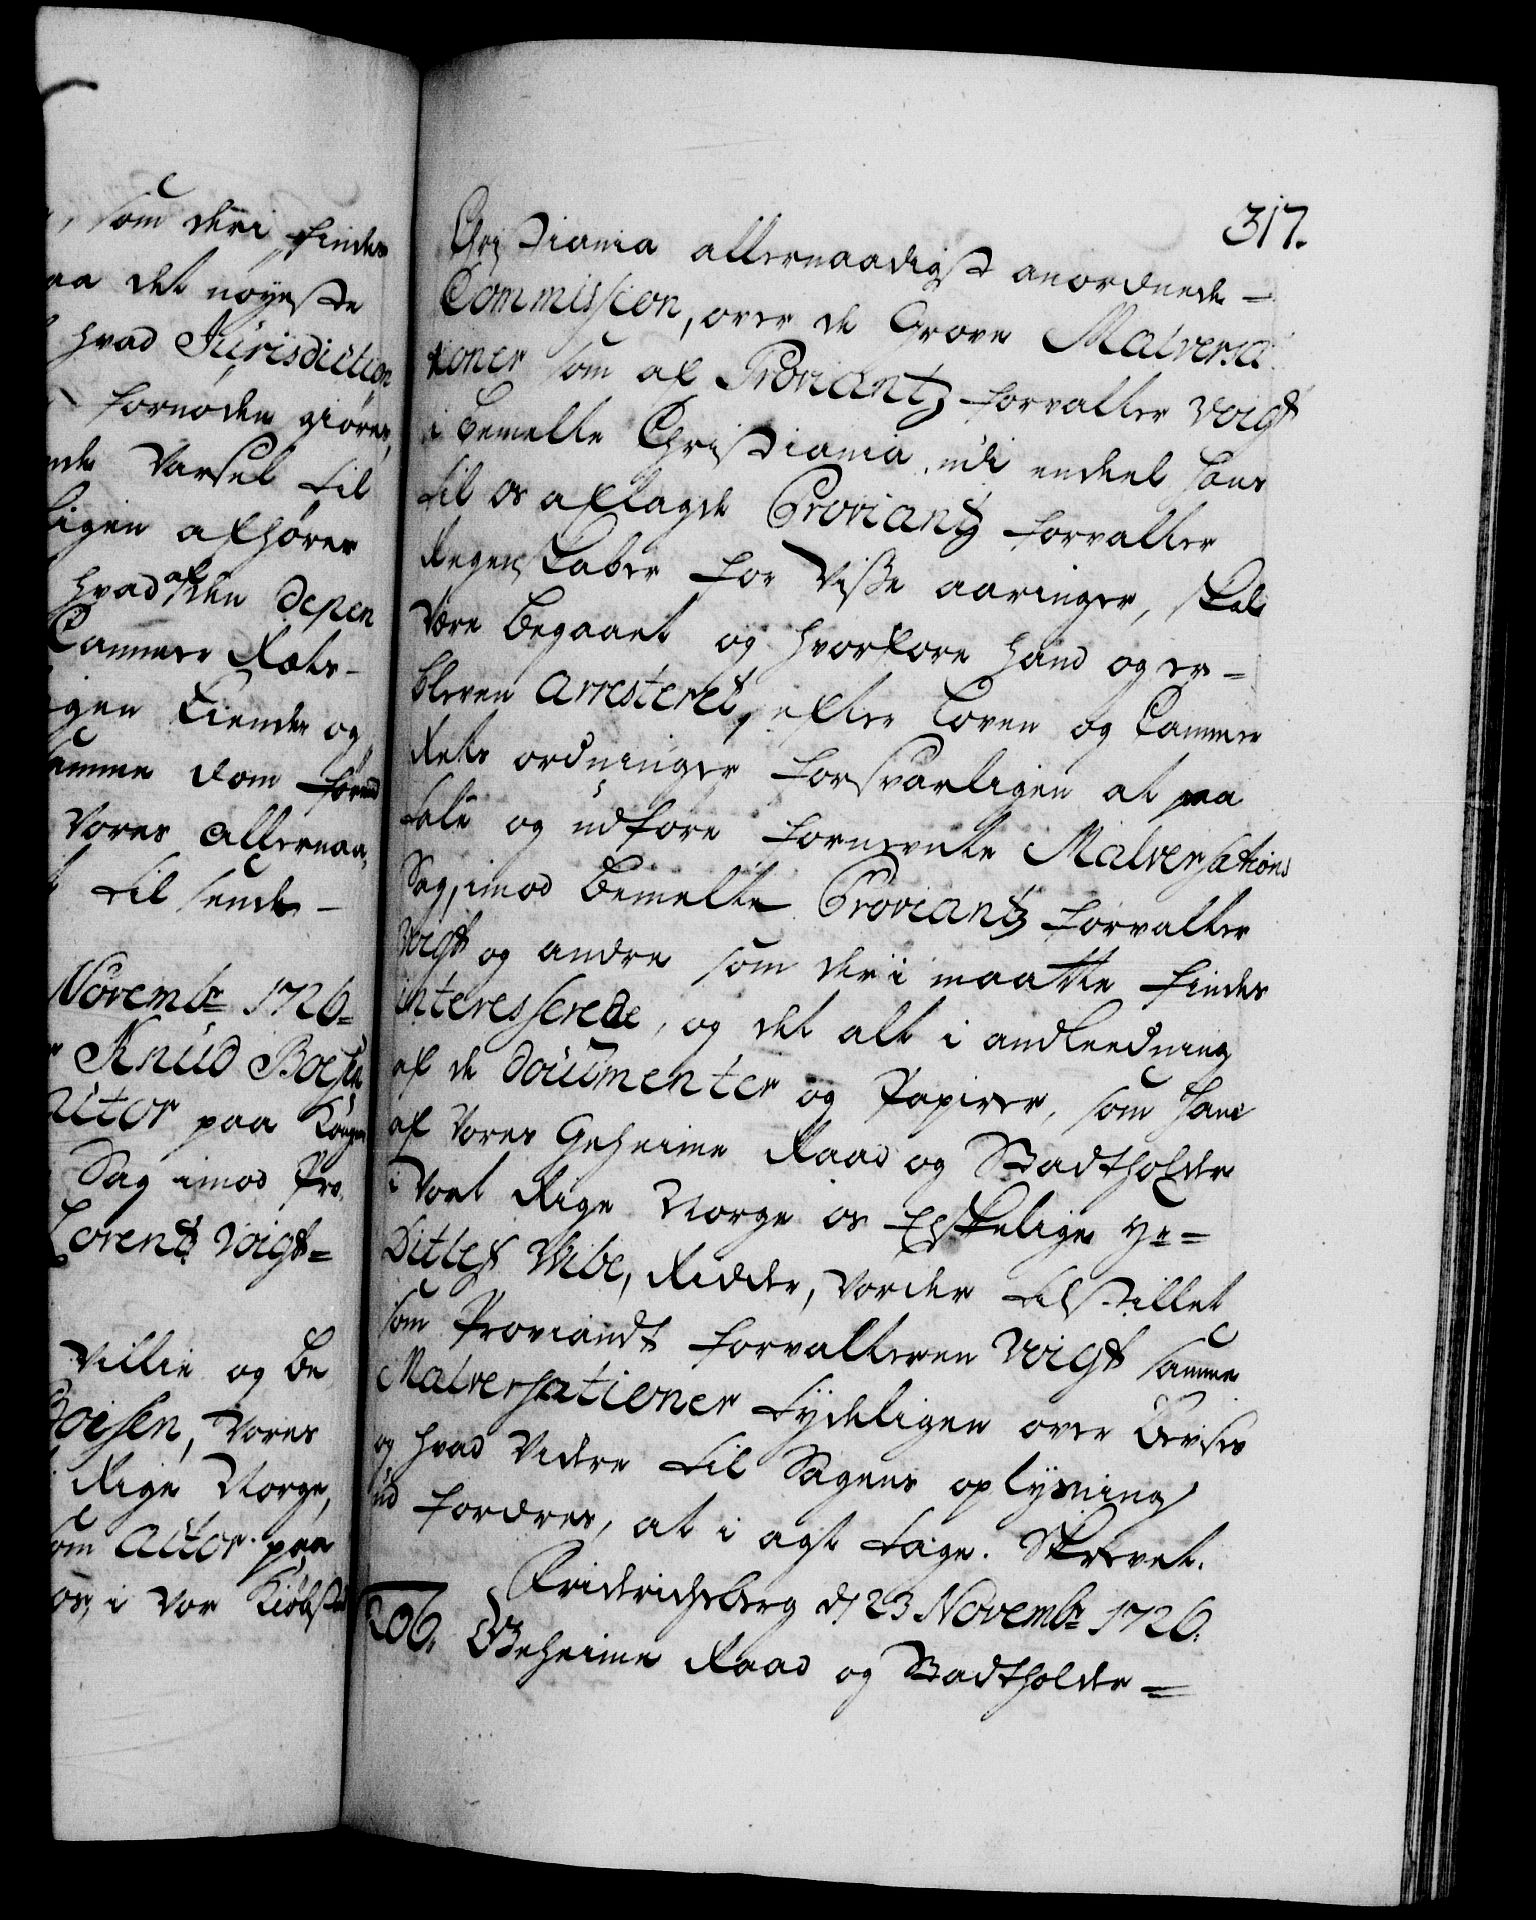 , som deri findes
aa det nøyeste
hvad Jurisdiction
fornøden giøres,
nde Varsel til
ligen afhører
hvad af den depen
Cammer Rets-
igen kiende og
samme dom forend
Vores allernaa
til sende -
Novembr 1726=
Knud Boesen
Actor paa Kongens
Sag imod Pro
Lorentz Voigt=
Villie og be
Boesen, Vores
Rige Norge,
som Actor paa
os, i vor Kiøbsted
317.
Christiania allernaadigst anordnede-
Commission, over de Grove Malversa-
tioner som af Proviantz forvalter Voigt
i bemelte Christiania udi endeel hans
til os aflagde Proviantz forvalter
Regenskaber for Visse aaringer, skal
være begaaet og hvorfore hand og er-
bleven Arresteret, efter Loven og Cammer
Rets ordninger forsvarligen at paa
tale og udføre fornevnte Malversations
Sag, imod bemelte Proviantz forvalter
Voigt og andre som deri maatte findes
interesserede, og det alt i andleedning
af de Documenter og Papirer, som hand
af Vores Geheime Raad og Stadtholder
i Vort Rige Norge os Elskelige Hr=
Ditlef Wibe, Ridder, vorder tilstillet
som Proviandt forvalteren Voigt samme
Malversationer tydeligen over beviser
og hvad Videre til Sagens oplysning
ud fordres, at i agt tage. Skrevet.
Friderichsberg d 23 Novembr 1726.
206. Geheime Raad og Stadtholder=